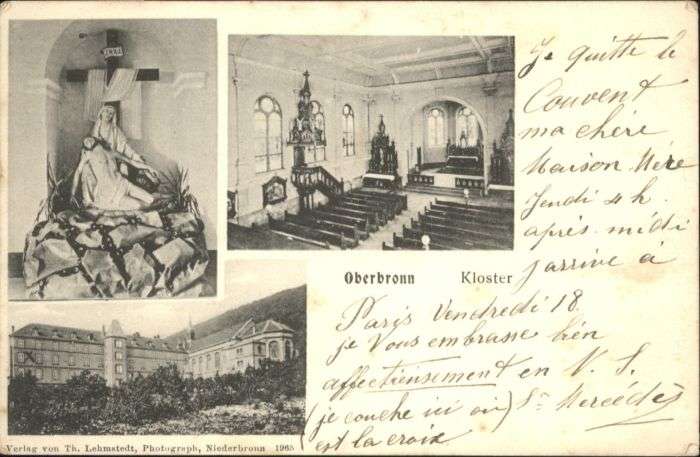 INRI
Je quitte le
Couvent
ma chère
Maison Mère
Jeudi 4 h.
après-midi
j'arrive à
Oberbronn Kloster
Paris Vendredi 18.
je Vous embrasse bien
affectieusement en N. S.
(je couche ici où) Sr Mercédès
est la croix
Verlag von Th. Lehmstedt, Photograph, Niederbronn 1905